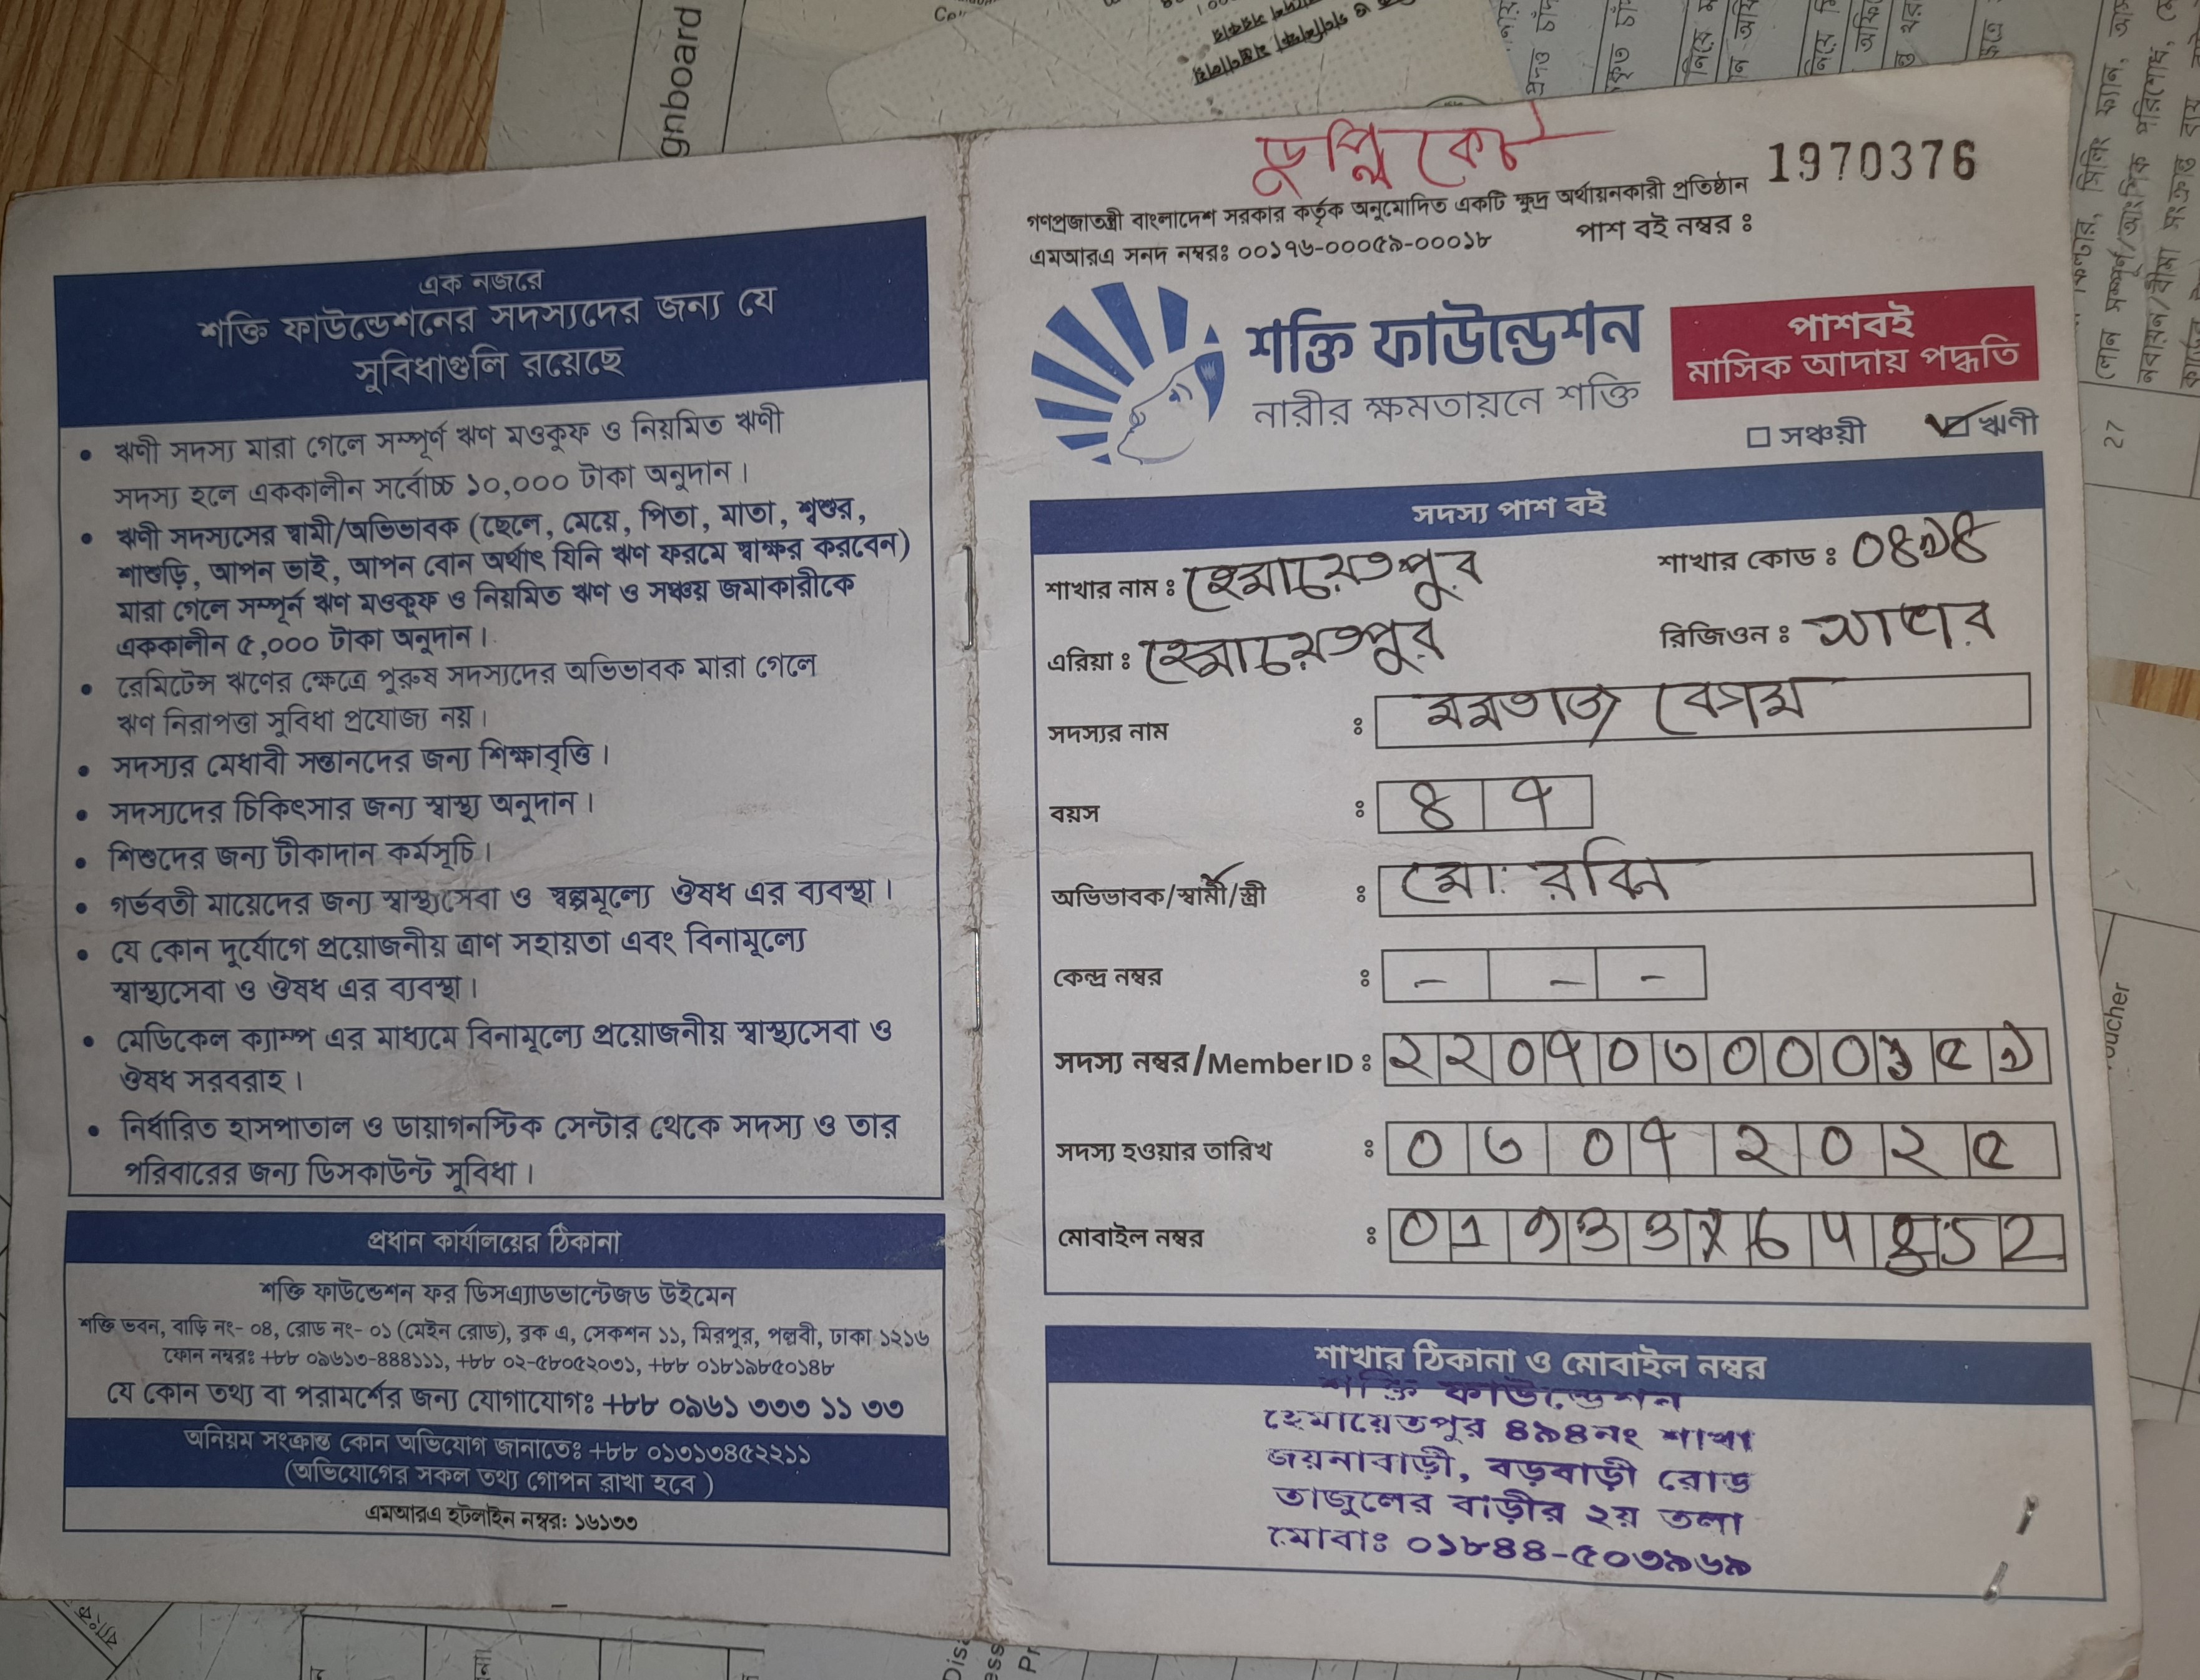 এক নজরে
শক্তি ফাউন্ডেশনের সদস্যদের জন্য যে
সুবিধাগুলি রয়েছে
• ঋণী সদস্য মারা গেলে সম্পূর্ণ ঋণ মওকুফ ও নিয়মিত ঋণী
সদস্য হলে এককালীন সর্বোচ্চ ১০,০০০ টাকা অনুদান।
• ঋণী সদস্যসের স্বামী/অভিভাবক (ছেলে, মেয়ে, পিতা, মাতা, শ্বশুর,
শাশুড়ি, আপন ভাই, আপন বোন অর্থাৎ যিনি ঋণ ফরমে স্বাক্ষর করবেন)
মারা গেলে সম্পূর্ন ঋণ মওকুফ ও নিয়মিত ঋণ ও সঞ্চয় জমাকারীকে
এককালীন ৫,০০০ টাকা অনুদান।
• রেমিটেন্স ঋণের ক্ষেত্রে পুরুষ সদস্যদের অভিভাবক মারা গেলে
ঋণ নিরাপত্তা সুবিধা প্রযোজ্য নয়।
• সদস্যর মেধাবী সন্তানদের জন্য শিক্ষাবৃত্তি।
• সদস্যদের চিকিৎসার জন্য স্বাস্থ্য অনুদান।
• শিশুদের জন্য টীকাদান কর্মসূচি।
• গর্ভবতী মায়েদের জন্য স্বাস্থ্যসেবা ও স্বল্পমূল্যে ঔষধ এর ব্যবস্থা।
• যে কোন দুর্যোগে প্রয়োজনীয় ত্রাণ সহায়তা এবং বিনামূল্যে
স্বাস্থ্যসেবা ও ঔষধ এর ব্যবস্থা।
• মেডিকেল ক্যাম্প এর মাধ্যমে বিনামূল্যে প্রয়োজনীয় স্বাস্থ্যসেবা ও
ঔষধ সরবরাহ।
• নির্ধারিত হাসপাতাল ও ডায়াগনস্টিক সেন্টার থেকে সদস্য ও তার
পরিবারের জন্য ডিসকাউন্ট সুবিধা।
প্রধান কার্যালয়ের ঠিকানা
শক্তি ফাউন্ডেশন ফর ডিসএ্যাডভান্টেজড উইমেন
শক্তি ভবন, বাড়ি নং- ০৪, রোড নং- ০১ (মেইন রোড), ব্লক এ, সেকশন ১১, মিরপুর, পল্লবী, ঢাকা ১২১৬
ফোন নম্বরঃ +৮৮ ০৯৬১৩-৪৪৪১১১, +৮৮ ০২-৫৮০৫২০৩১, +৮৮ ০১৮১৯৮৫০১৪৮
যে কোন তথ্য বা পরামর্শের জন্য যোগাযোগঃ +৮৮ ০৯৬১ ৩৩৩ ১১ ৩৩
অনিয়ম সংক্রান্ত কোন অভিযোগ জানাতেঃ +৮৮ ০১৩১৩৪৫২২১১
(অভিযোগের সকল তথ্য গোপন রাখা হবে)
এমআরএ হটলাইন নম্বর: ১৬১৩৩
ডুপ্লিকেট
1970376
গণপ্রজাতন্ত্রী বাংলাদেশ সরকার কর্তৃক অনুমোদিত একটি ক্ষুদ্র অর্থায়নকারী প্রতিষ্ঠান
এমআরএ সনদ নম্বরঃ ০০১৭৬-০০০৫৯-০০০১৮ পাশ বই নম্বর ঃ
শক্তি ফাউন্ডেশন
নারীর ক্ষমতায়নে শক্তি
পাশবই
মাসিক আদায় পদ্ধতি
সঞ্চয়ী ঋণী
সদস্য পাশ বই
শাখার নাম ঃ হেমায়েতপুর শাখার কোড ঃ ০৪৯৪
এরিয়া ঃ হেমায়েতপুর রিজিওন ঃ সাভার
সদস্যর নাম ঃ মমতাজ বেগম
বয়স ঃ ৪৭
অভিভাবক/স্বামী/স্ত্রী ঃ মো: রবিন
কেন্দ্র নম্বর ঃ – – –
সদস্য নম্বর/Member ID ঃ ২২০৭০৩০০০১৫৯
সদস্য হওয়ার তারিখ ঃ ০৩০৭২০২৫
মোবাইল নম্বর ঃ
শাখার ঠিকানা ও মোবাইল নম্বর
শক্তি ফাউন্ডেশন
হেমায়েতপুর ৪৯৪নং শাখা
জয়নাবাড়ী, বড়বাড়ী রোড
তাজুলের বাড়ীর ২য় তলা
মোবাঃ ০১৮৪৪-৫০৩৯৬৯
gnboard
27
oucher